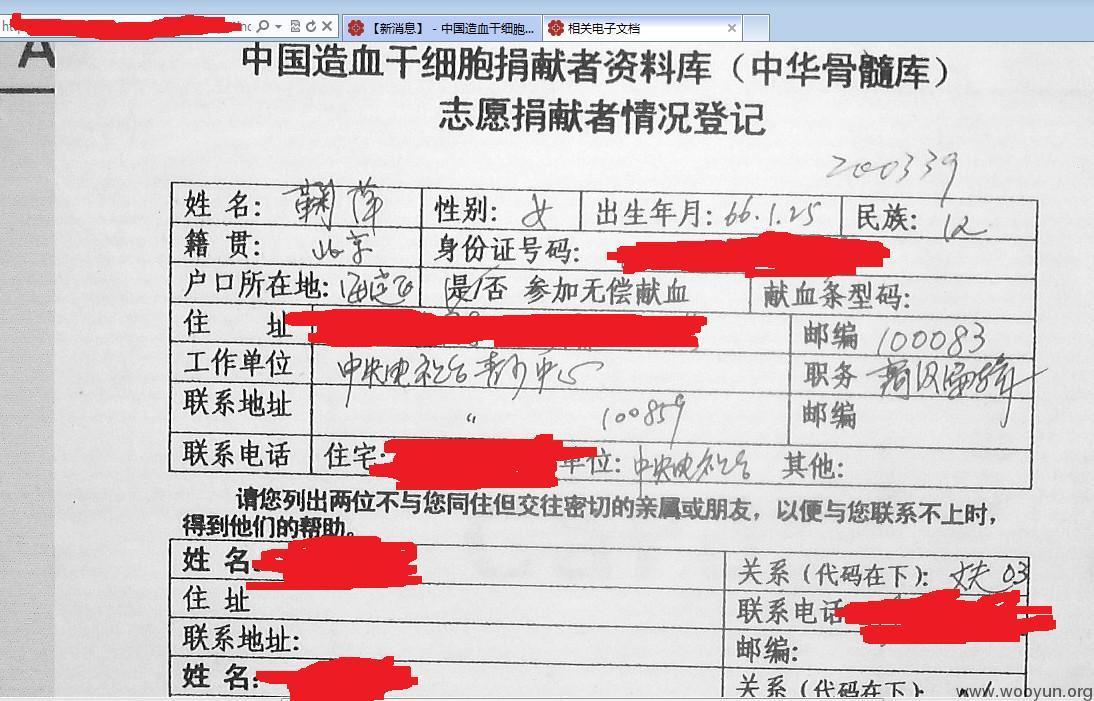 【新消息】 - 中国造血干细胞... 相关电子文档
中国造血干细胞捐献者资料库（中华骨髓库）
志愿捐献者情况登记
200339
姓 名: 鞠萍 性别: 女 出生年月: 66.1.25 民族: 汉
籍 贯: 北京 身份证号码:
户口所在地: 海淀区 是/否 参加无偿献血 献血条型码:
住 址 邮编 100083
工作单位 中央电视台青少中心 职务
联系地址 〃 100859 邮编
联系电话 住宅: 单位: 中央电视台 其他:
请您列出两位不与您同住但交往密切的亲属或朋友，以便与您联系不上时，
得到他们的帮助。
姓 名: 关系（代码在下）: 丈夫 03
住 址 联系电话
联系地址: 邮编:
姓 名: 关系（代码在下）:
www.wooyun.org